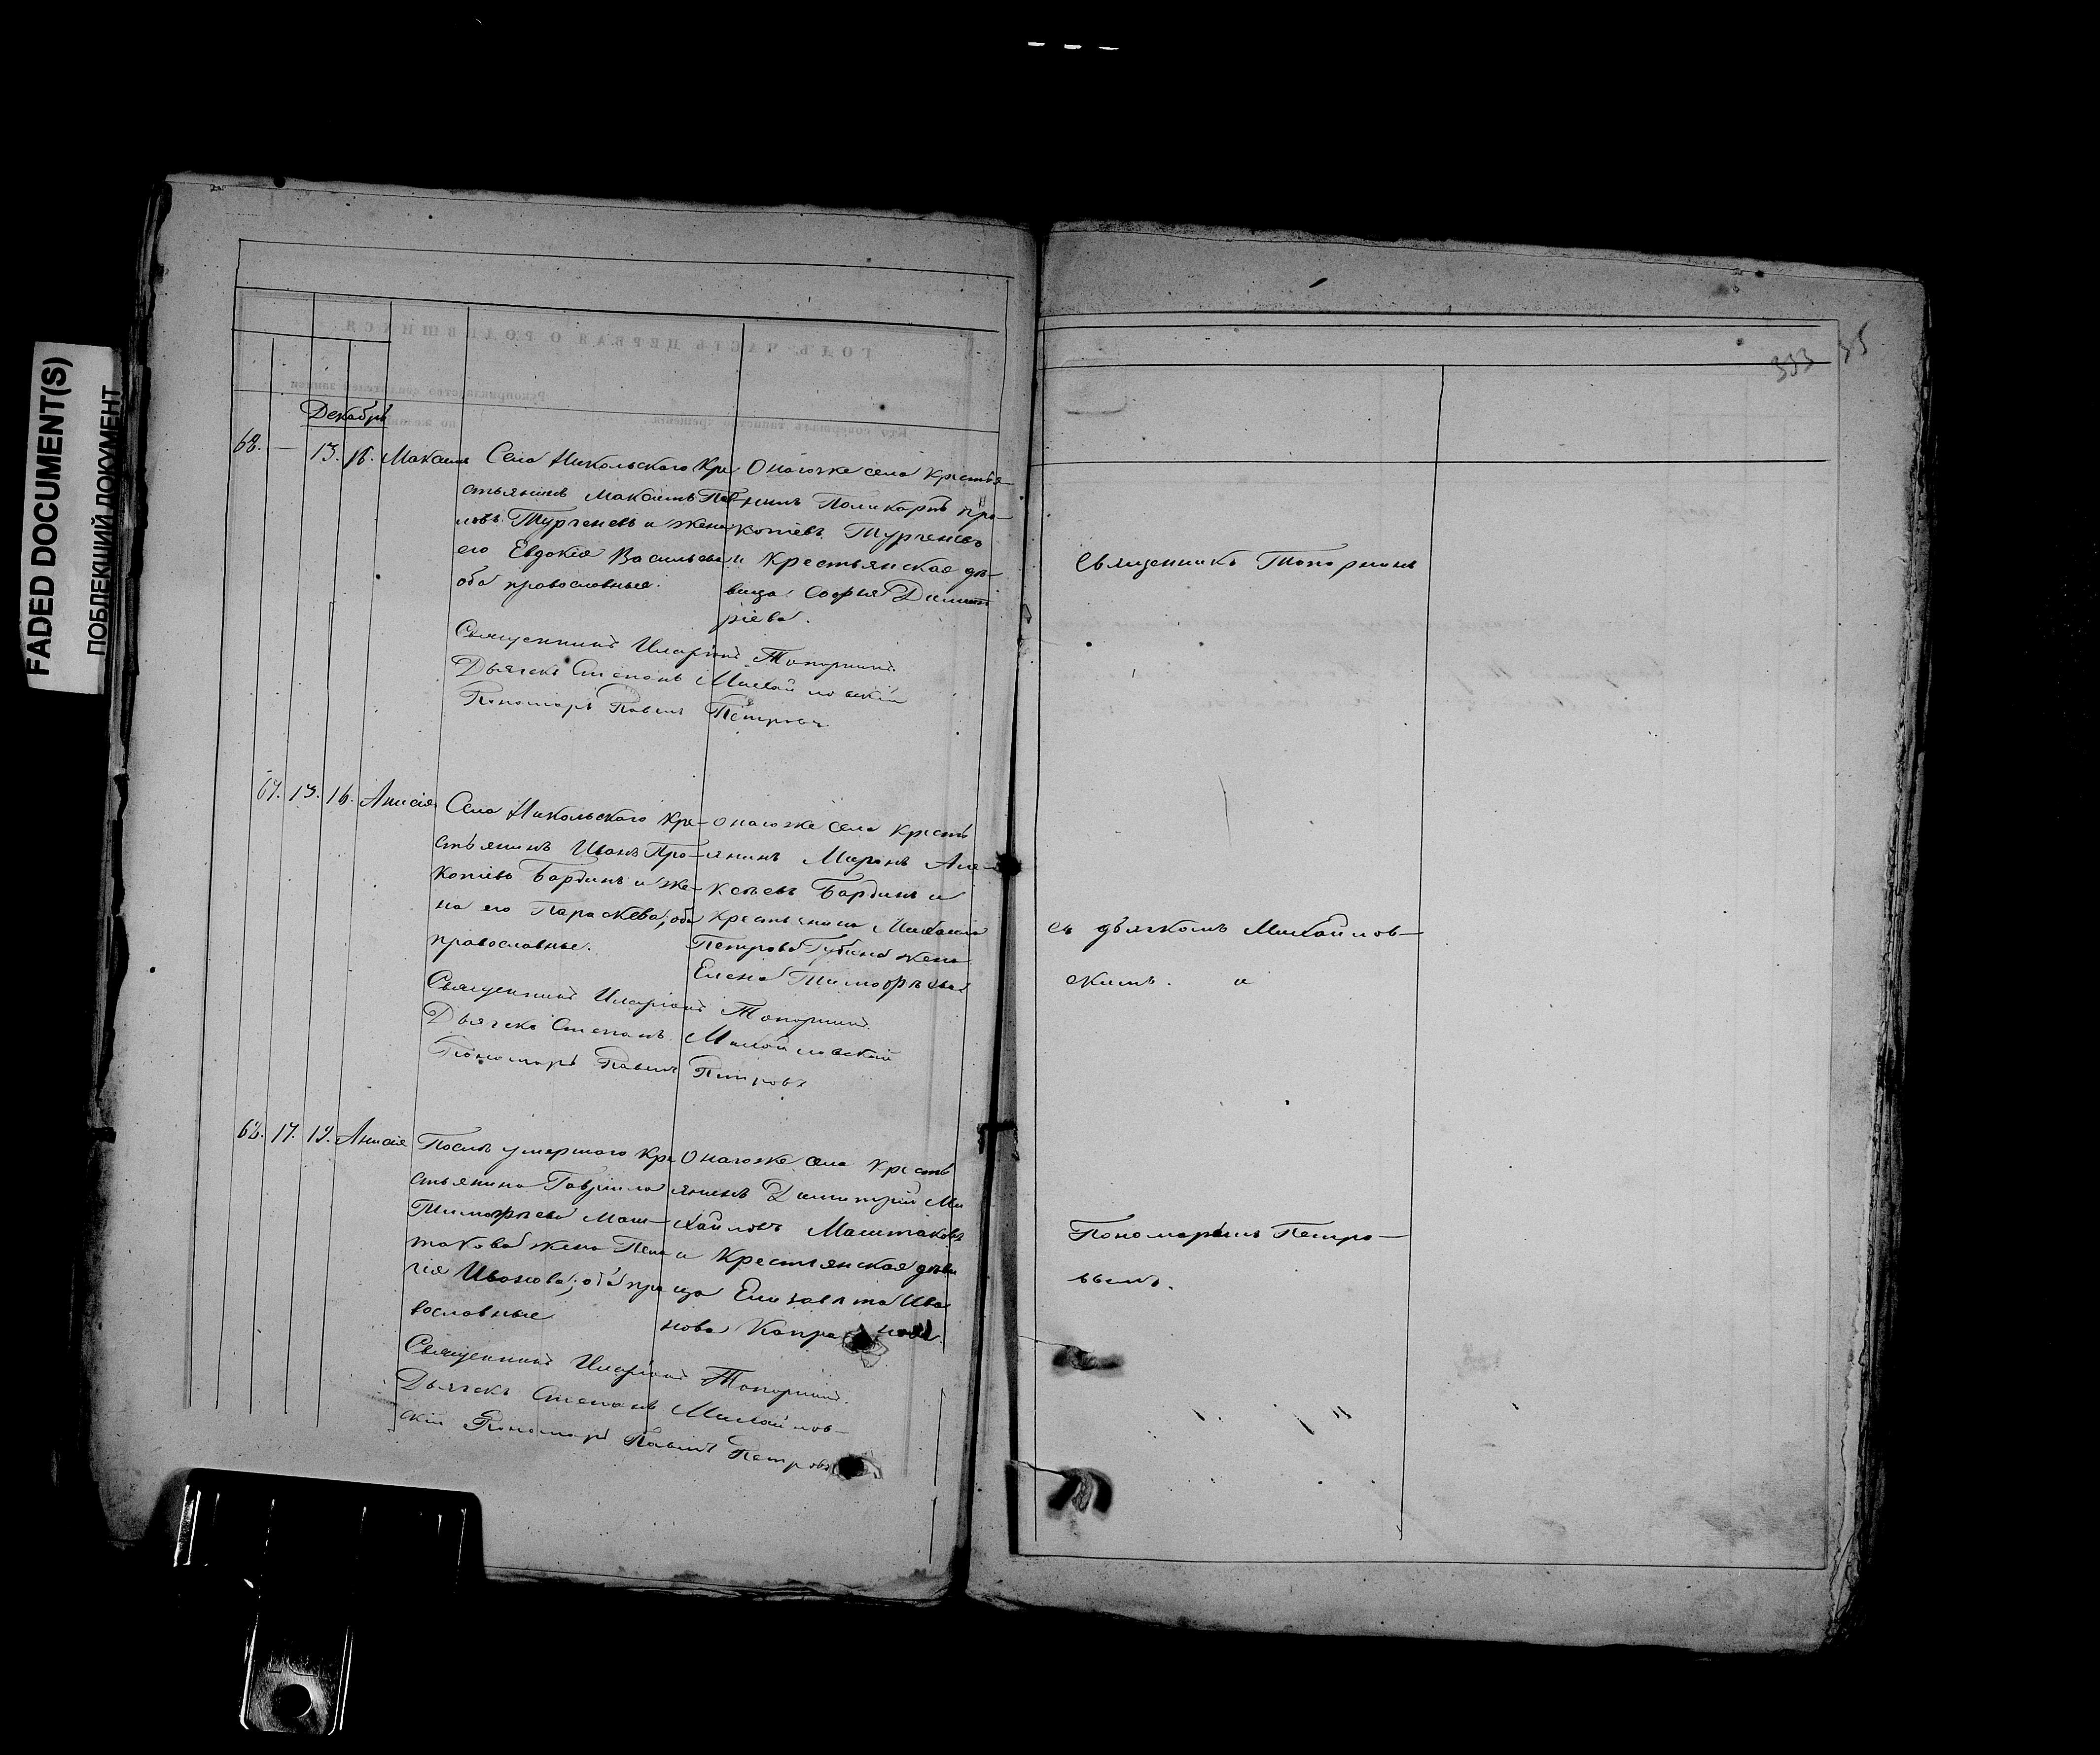 FADED DOCUMENT(S)
ПОБЛЕКШИЙ ДОКУМЕНТ
353
35
ГОДЪ ЧАСТЬ ПЕРВАЯ О РОДИВШИХСЯ
Декабрь
68. — 13. 16. Максимъ
Села Никольскаго Кре-
стьянинъ Максимъ Пав-
ловъ Тургеневъ и жена
его Евдокія Васильева
оба православные.
Онагоже села крестья-
нинъ Поликарпъ Про-
копіевъ Тургеневъ
и Крестьянская дѣ-
вица Софья Димит
ріева.
Священникъ Иларіонъ Топорнинъ
Дьячекъ Степанъ Михайловскій
Пономарь Павелъ Петровъ
67. 13. 16. Анисія
Села Никольскаго кре-
стьянинъ Иванъ Про-
копіевъ Бардинъ и же-
на его Параскева; оба
православные.
Онагоже села кресть
янинъ Миронъ Але-
ксѣевъ Бардинъ и
крестьянина Михаила
Петрова Губина жена
Елена Тимофѣева
Священникъ Иларіонъ Топорнинъ
Дьячекъ Степанъ Михайловскій
Пономарь Павелъ Петровъ
68. 17. 19. Анисія
Послѣ умершаго кре
стьянина Гавріила
Тимофѣева Маш-
такова жена Пела
гія Иванова; оба пра
вославные
Онагоже села кресть
янинъ Димитрій Ми
хайловъ Маштаковъ
и Крестьянская дѣви
ца Елизавета Ива
нова
Священникъ Иларіонъ Топорнинъ
Дьячекъ Степанъ Михайлов-
скій Пономарь Павелъ Петровъ
Священникъ Топорнинъ
съ дьячкомъ Михайлов-
скимъ. и
Пономаремъ Петро-
вымъ.